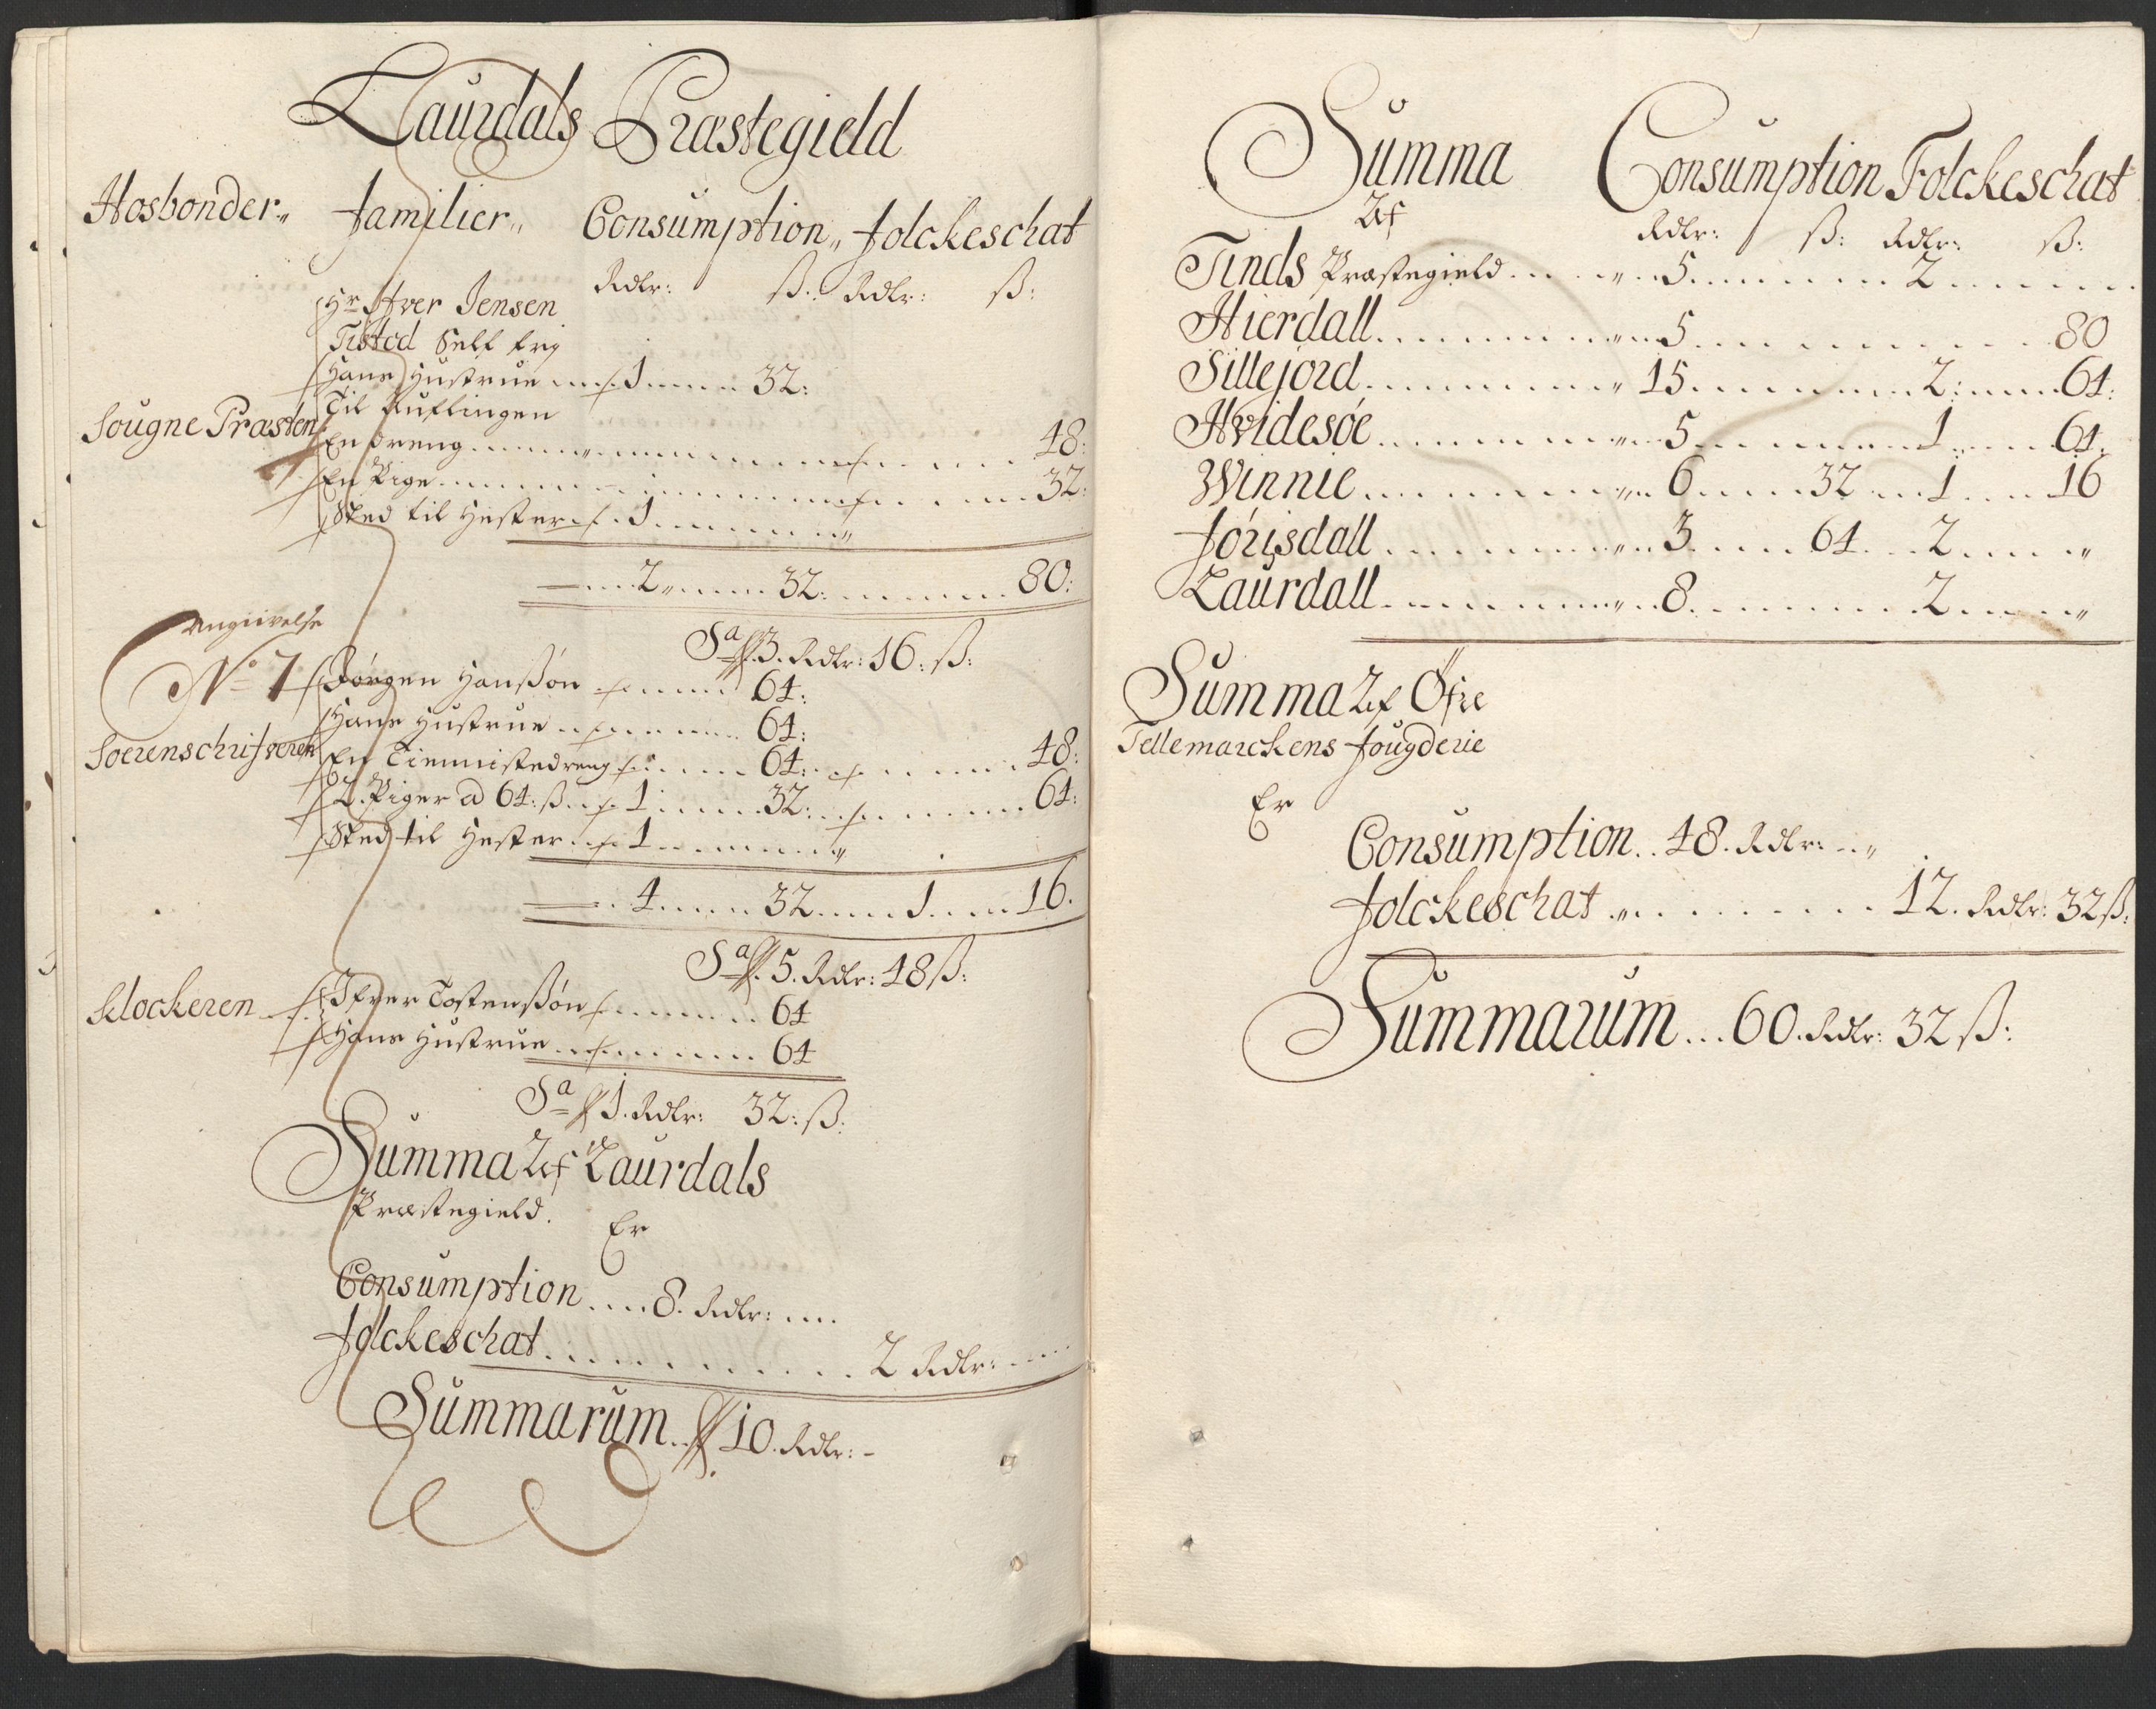 Laurdals Præstegield
Hosbonder„ familier„ Consumption„ folckeschat
Rdlr: ß: Rdlr: ß:
Hr Iver Jensen
Tisted self frj
Hans Hustrue 1 32:
Til Kuslingen
Sougne Præsten
En dreng 48:
En Pige 32:
Sted til Hester 1 „
2 32: 80:
Sa 3. Rdlr: 16: ß:
Angiivelse
No 7 Jörgen Hansßön 64:
Hans Hustrue 64:
Soerenschrifveren En Tiennistedreng 64: 48:
2. Piger a 64: ß 1 32: 64:
Sted til Hester 1 „
4 32 1 16.
Sa 5. Rdlr: 48 ß:
Klockeren Ifver Tostensßön 64
Hans Hustrue 64
Sa 1. Rdlr: 32: ß:
Summa Af Laurdals
Præstegield. Er
Consumption.... 8. Rdlr:
folckeschat 2 Rdlr:
Summarum.. 10. Rdlr: -
Summa Consumption Folckeschat
Af Rdlr: ß: Rdlr: ß:
Tinds Præstegield 5 2
Hierdall 5 80
Sillejord 15 2: 64:
Hvidesöe 5 1 64.
Winnie 6 32 1 16
förisdall 3 64 2 „
Laurdall 8 2 „
Summa Af Öfre
Tellemarckens fougderie
Er
Consumption.. 48. Rdlr: „
folckeschat 12. Rdlr: 32 ß:
Summarum... 60. Rdlr: 32 ß: